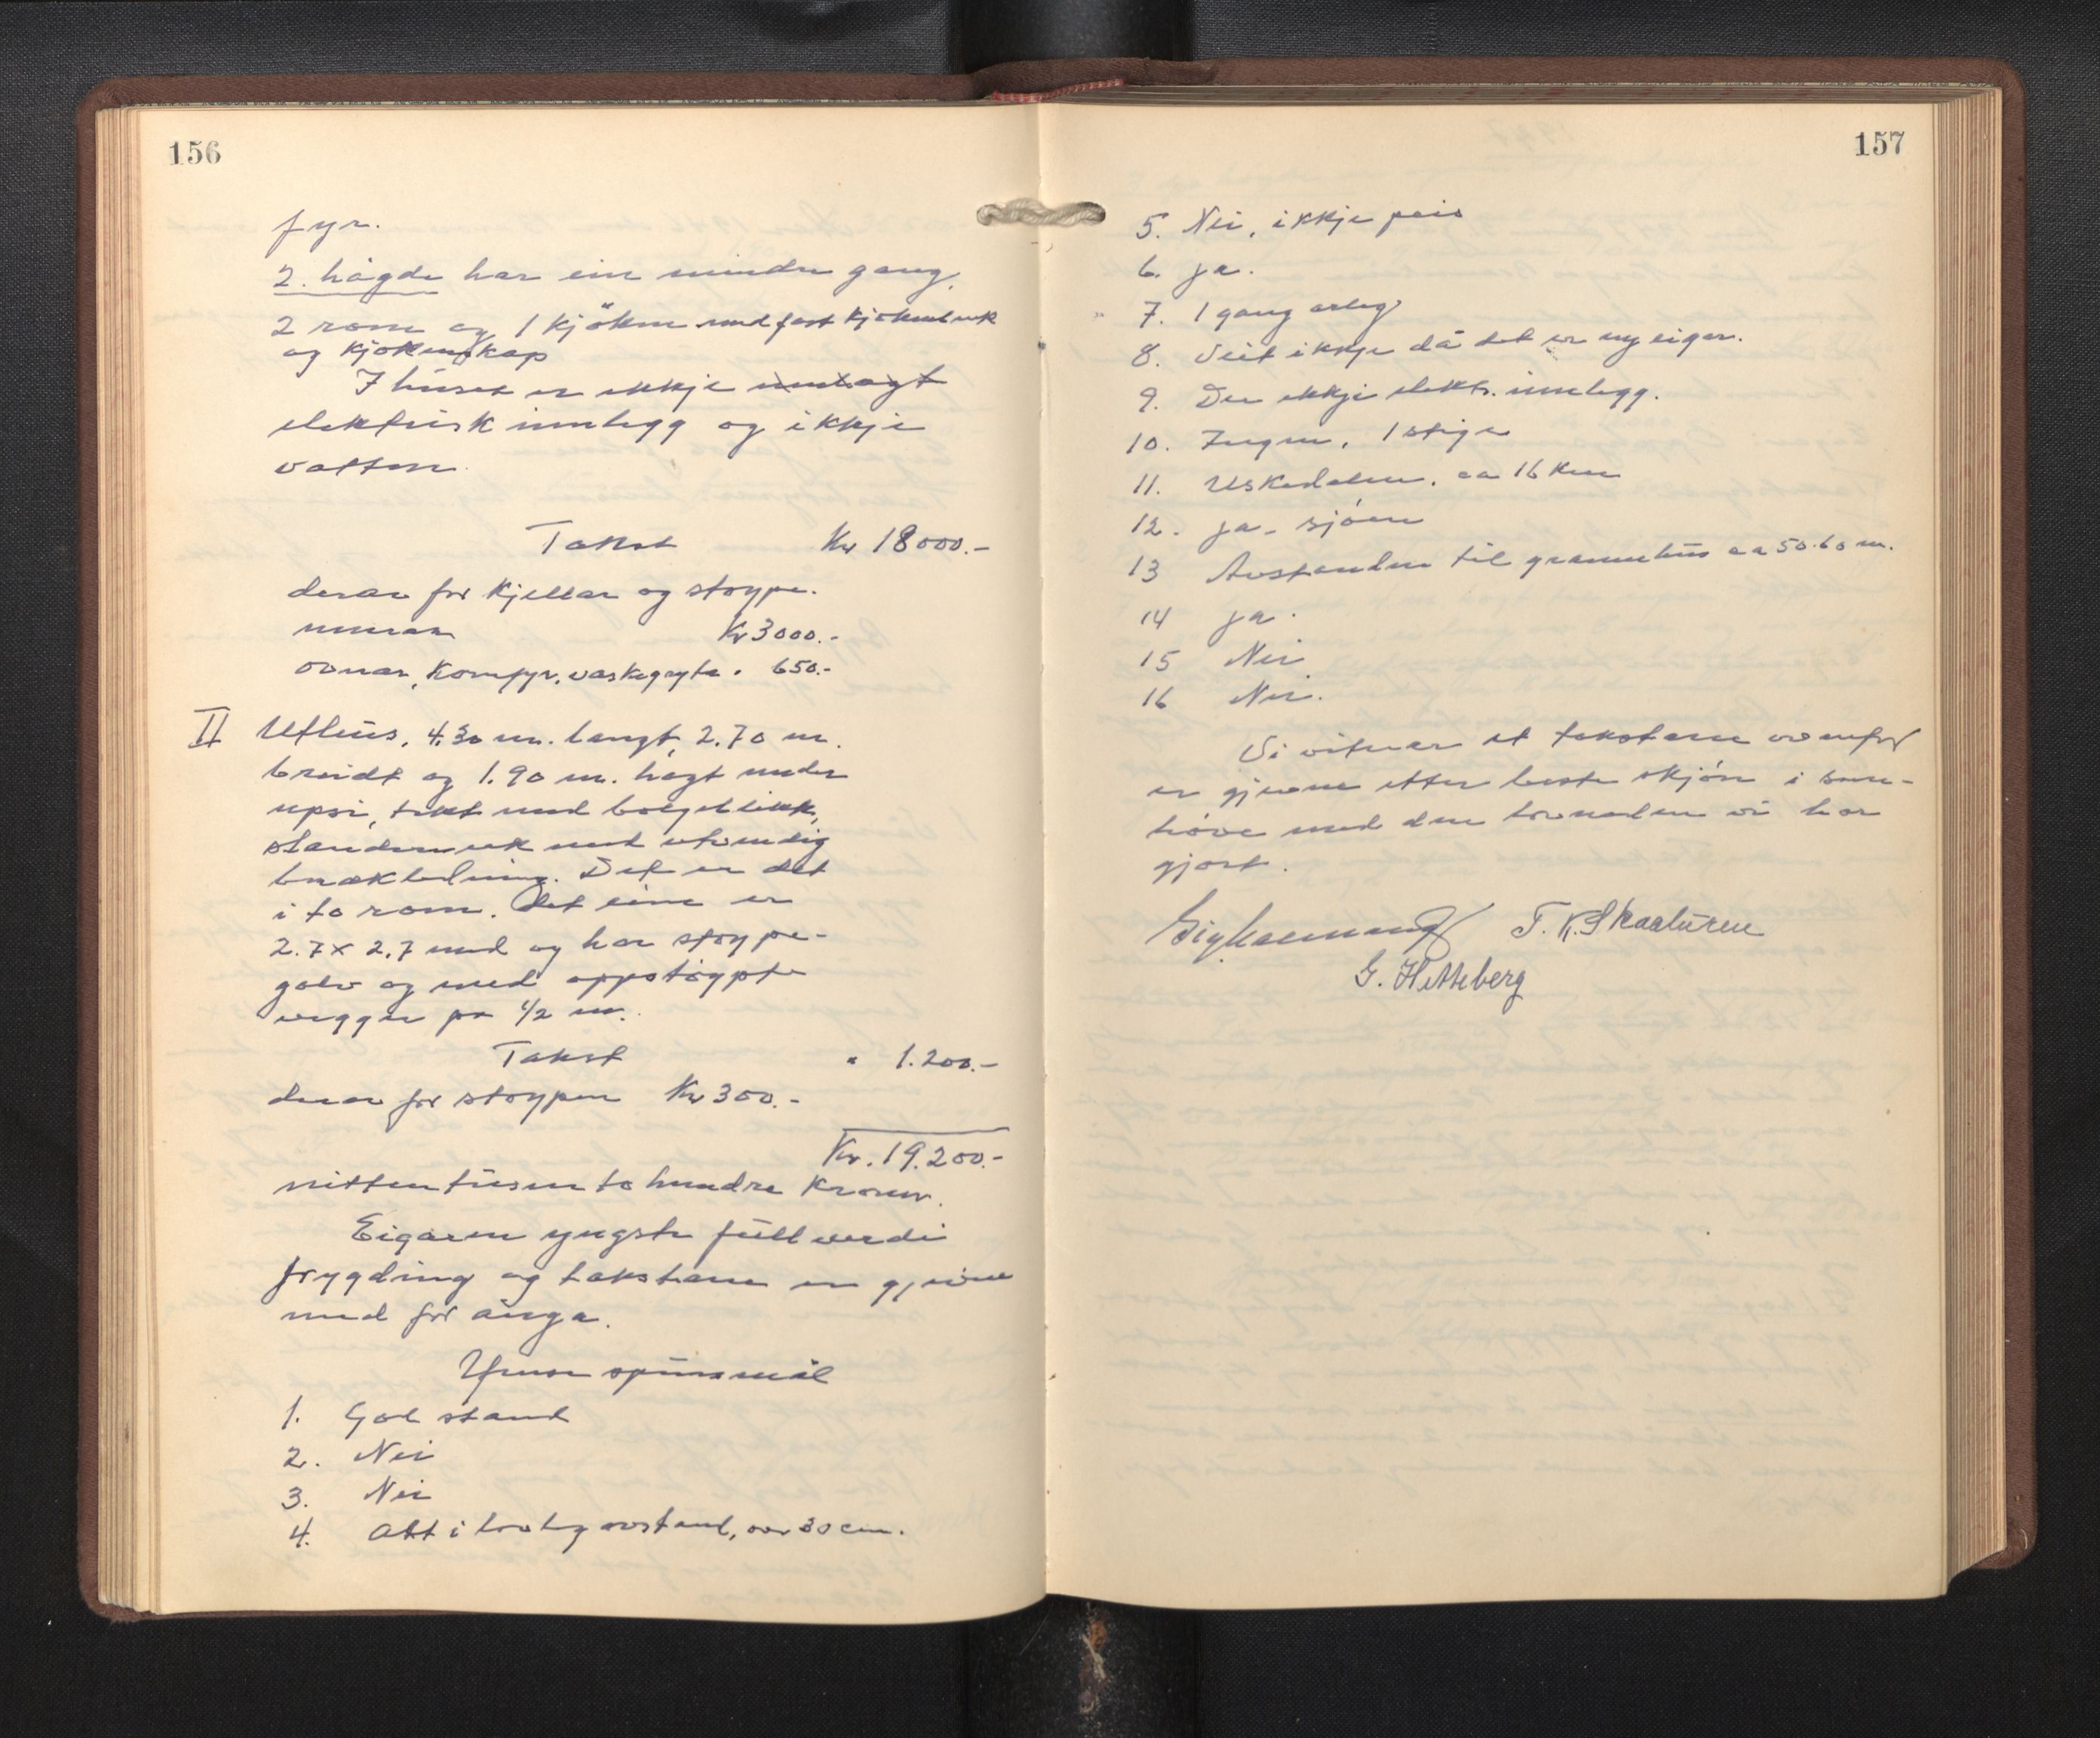 156
fyr.
2. høgde har ein mindre gang,
2 rom og 1 kjøken med fast kjøkenbenk
og kjøkenskap
I huset er ikkje innlagt
elektrisk innlegg og ikkje
vatten.
Takst Kr 18000.-
derav for kjellar og støype-
murar Kr 3000.-
ovnar, komfyr, vaskegryte. 650.-
II Uthus, 4.30 m. langt, 2.70 m.
breidt og 1.90 m. høgt under
upsi, tekt med bølgeblikk,
standerverk med utvendig
bordkledning. Det er delt
i to rom. Det eine er
2.7 x 2.7 med og har støype-
golv og med oppstøypte
vegger på 1/2 m.
Takst " 1.200.-
derav for støypen Kr 300.-
Kr. 19.200.-
nitten tusen to hundre kroner.
Eigaren yngstr fullverdi
trygding og takstane er gjevne
med for auga.
Ymse spursmål
1. God stand
2. Nei
3. Nei
4. Alt i lovleg avstand, over 30 cm.
157
5. Nei, ikkje peis
6. Ja.
7. 1 gang årleg
8. Veit ikkje då det er ny eigar.
9. Der ikkje elektr. innlegg.
10. Ingen, 1 stige
11. Uskedalen, ca 16 km
12. Ja, sjøen
13 Avstanden til grannehus ca 50-60 m.
14 Ja.
15 Nei
16 Nei.
Vi vitnar at takstane ovanfor
er gjevne etter beste skjøn i sam-
høve med den lovnaden vi har
gjort.
T. K. Skaaluren
G. Hetteberg